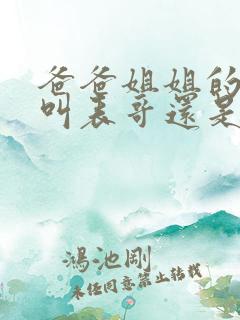 爸爸姐姐的
叫表哥還是
鴻池剛
未经同意禁止转载